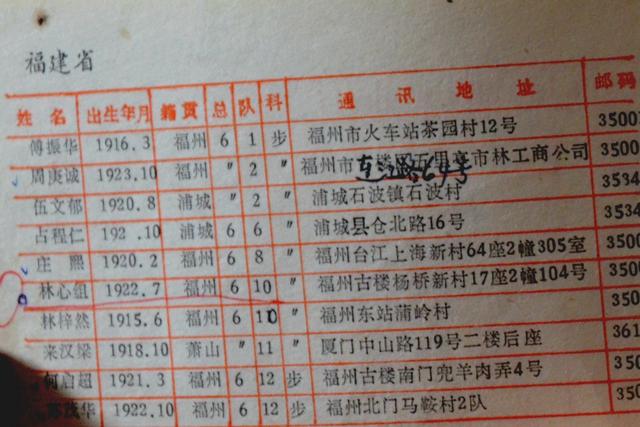 福建省
姓名 出生年月 籍贯 总 队 科 通讯地址 邮码
傅振华 1916.3 福州 6 1 步 福州市火车站茶园村12号 3500
周庚诚 1923.10 福州 〃 2 〃 福州市 楼 五里亭市林工商公司 3500
伍文郁 1920.8 浦城 〃 2 〃 浦城石波镇石波村 3534
占程仁 192 .10 浦城 6 6 〃 浦城县仓北路16号 3534
庄熙 1920.2 福州 6 8 〃 福州台江上海新村64座2幢305室 3500
林心组 1922.7 福州 6 10 〃 福州古楼杨桥新村17座2幢104号 3500
林梓然 1915.6 福州 6 10 〃 福州东站蒲岭村 3500
来汉梁 1918.10 萧山 〃 11 〃 厦门中山路119号二楼后座 361
何启超 1921.3 福州 6 12 步 福州古楼南门兜羊肉弄4号 350
茂华 1922.10 福州 6 12 步 福州北门马鞍村2队 350